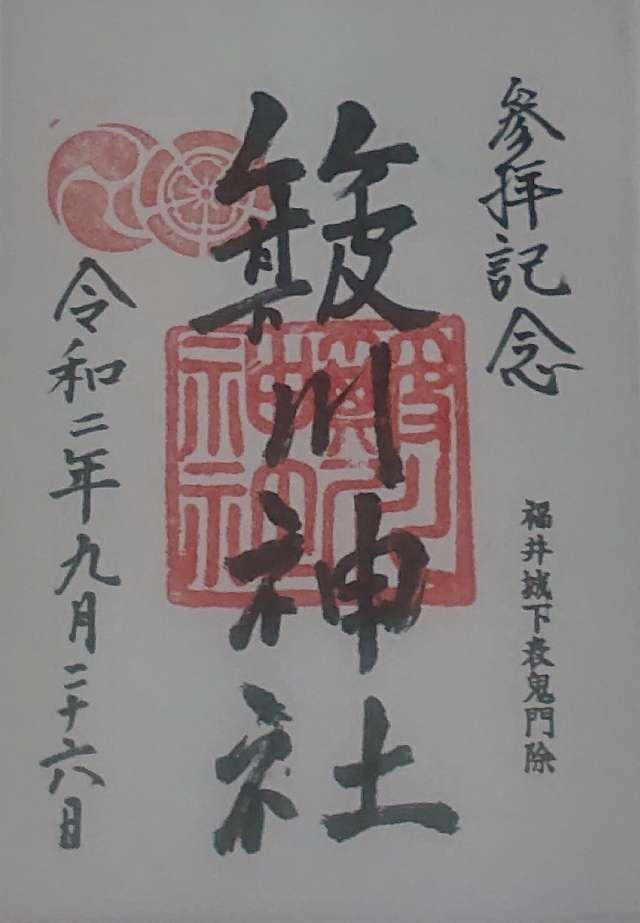 參拝記念
福井城下表鬼門除
簸川神社
簸川神社
令和二年九月二十六日